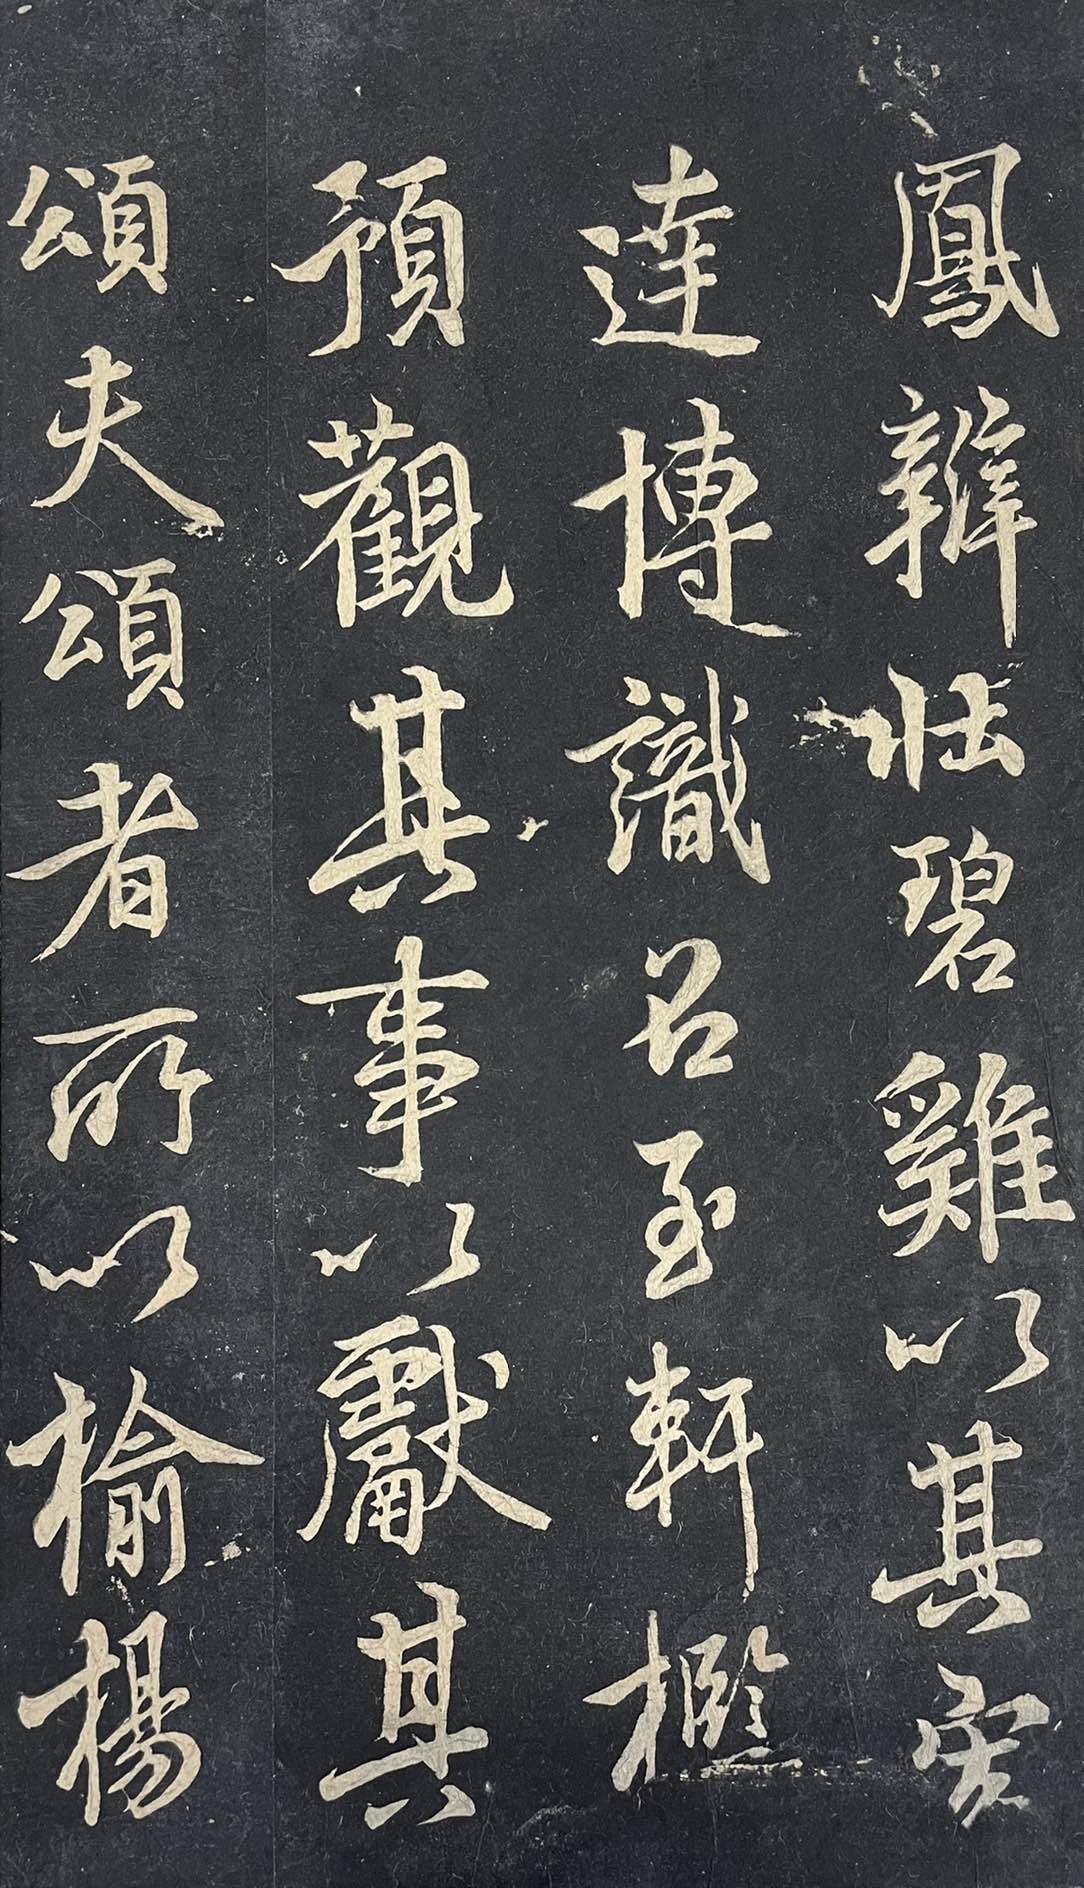 鳳辯壯碧雞以其宏
達博識召至軒檻
預觀其事以獻其
頌夫頌者所以揄揚